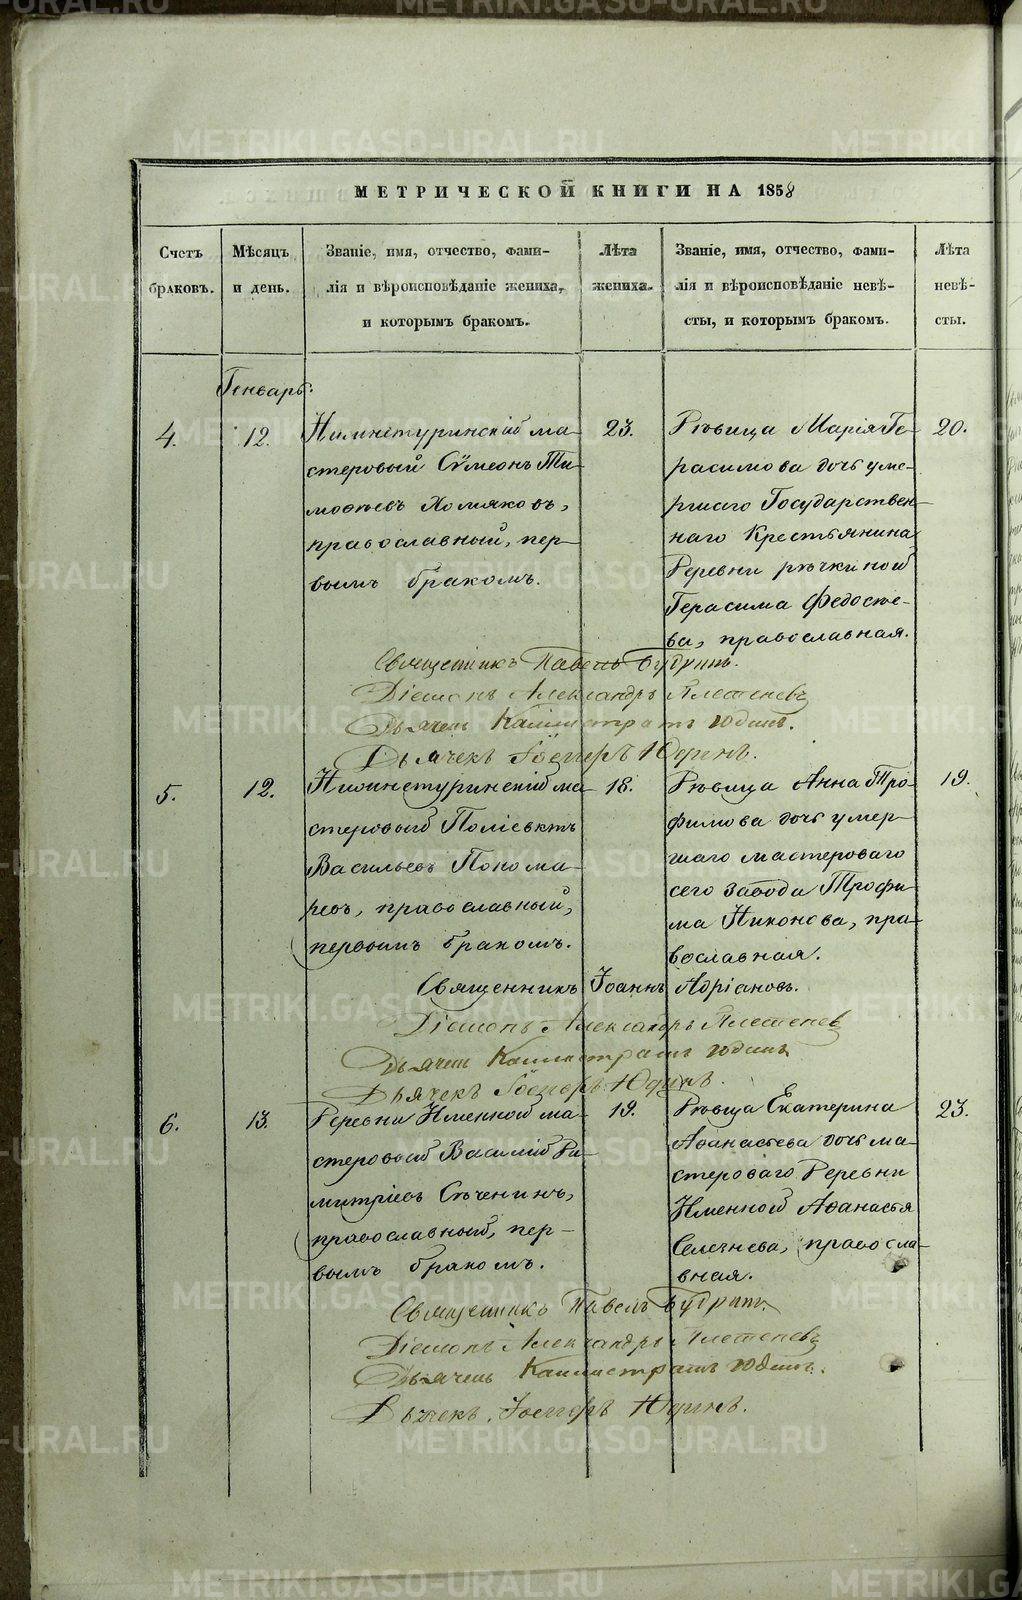 МЕТРИЧЕСКОЙ КНИГИ НА 1858
Счетъ
браковъ.
Мѣсяцъ
и день.
Званіе, имя, отчество, фами-
лія и вѣроисповѣданіе жениха,
и которымъ бракомъ.
Лѣта
жениха.
Званіе, имя, отчество, фами-
лія и вѣроисповѣданіе невѣ-
сты, и которымъ бракомъ.
Лѣта
невѣ-
сты.
Генварь.
4.
12.
Нижнетуринскій ма-
стеровый Сѵмеонъ Ти-
моѳеевъ Хомяковъ,
православный, пер-
вымъ бракомъ.
23.
Дѣвица Марія Ге-
расимова дочь уме-
ршаго Государствен-
наго Крестьянина
Деревни рѣчкиной
Герасима Федосѣе-
ва, православная.
20.
Священникъ Павелъ Будринъ.
Діаконъ Александръ Плетеневъ
Дьячекъ Каллистратъ Юдинъ.
Дьячекъ Іосифъ Юдинъ.
5.
12.
Нижнетуринскій ма-
стеровый Поліевктъ
Васильевъ Понома-
ревъ, православный,
первымъ бракомъ.
18.
Дѣвица Анна Тро-
фимова дочь умер-
шаго мастероваго
сего завода Трофи-
ма Никонова, пра-
вославная.
19.
Священникъ Іоаннъ Адріановъ.
Діаконъ Александръ Плетенев
Дьячекъ Каллистратъ Юдинъ
Дьячекъ Іосифъ Юдинъ.
6.
13.
Деревни Именной ма-
стеровый Василій Ди-
митріевъ Сѣченинъ,
православный, пер-
вымъ бракомъ.
19.
Дѣвица Екатерина
Аѳанасьева дочь ма-
стероваго Деревни
Именной Аѳанасья
Селезнева, правосла-
вная.
23.
Священникъ Павелъ Будринъ.
Діаконъ Александръ Плетеневъ
Дьячекъ Каллистратъ Юдинъ.
Дьячекъ Іосифъ Юдинъ.
METRIKI.GASO-URAL.RU